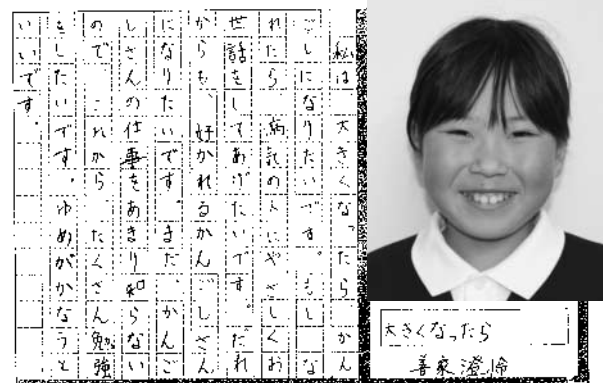 私は、大きくなったら、かん
ごしになりたいです。もしな
れたら、病気の人にやさしくお
世話をしてあげたいです。だれ
からも、好かれるかんごしさん
になりたいです。まだ、かんご
しさんの仕事をあまり知らない
ので、これから、たくさん勉強
をしたいです。ゆめがかなうと
いいです。
大きくなったら
善家澄怜